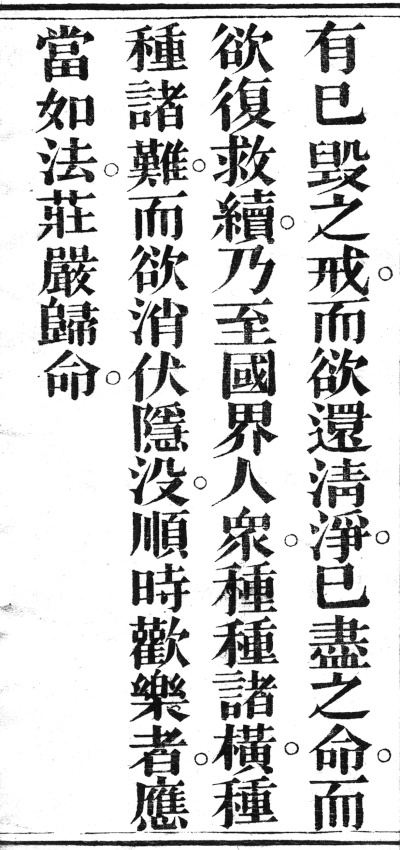 有已毀之戒。而欲還清淨。已盡之命。而
欲復救續。乃至國界人衆。種種諸橫。種
種諸難。而欲消伏隱没。順時歡樂者。應
當如法。莊嚴歸命。